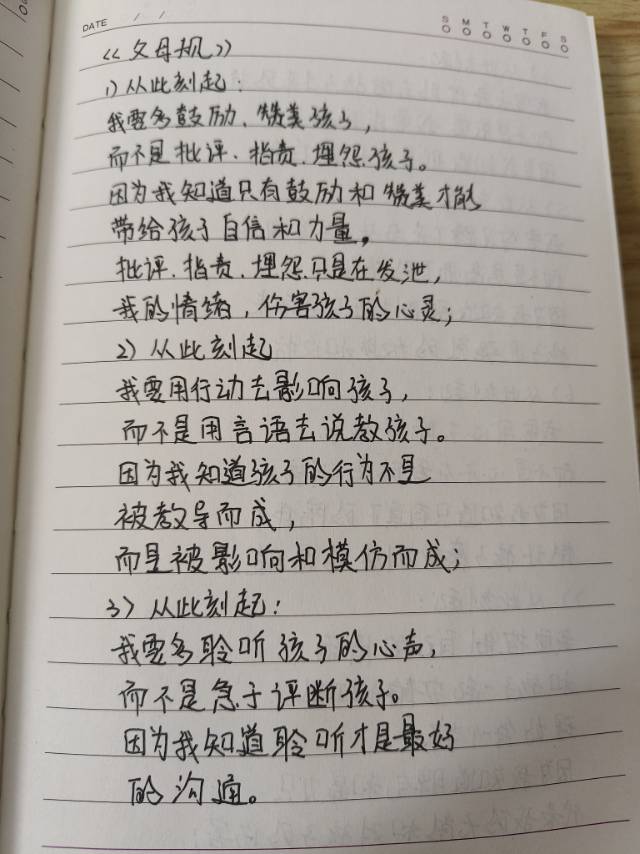 DATE / /
S M T W T F S
《父母规》
1) 从此刻起:
我要多鼓励、赞美孩子,
而不是批评、指责、埋怨孩子。
因为我知道只有鼓励和赞美才能
带给孩子自信和力量,
批评、指责、埋怨只是在发泄,
我的情绪,伤害孩子的心灵;
2) 从此刻起
我要用行动去影响孩子,
而不是用言语去说教孩子。
因为我知道孩子的行为不是
被教导而成,
而是被影响和模仿而成;
3) 从此刻起:
我要多聆听孩子的心声,
而不是急于评断孩子。
因为我知道聆听才是最好
的沟通。